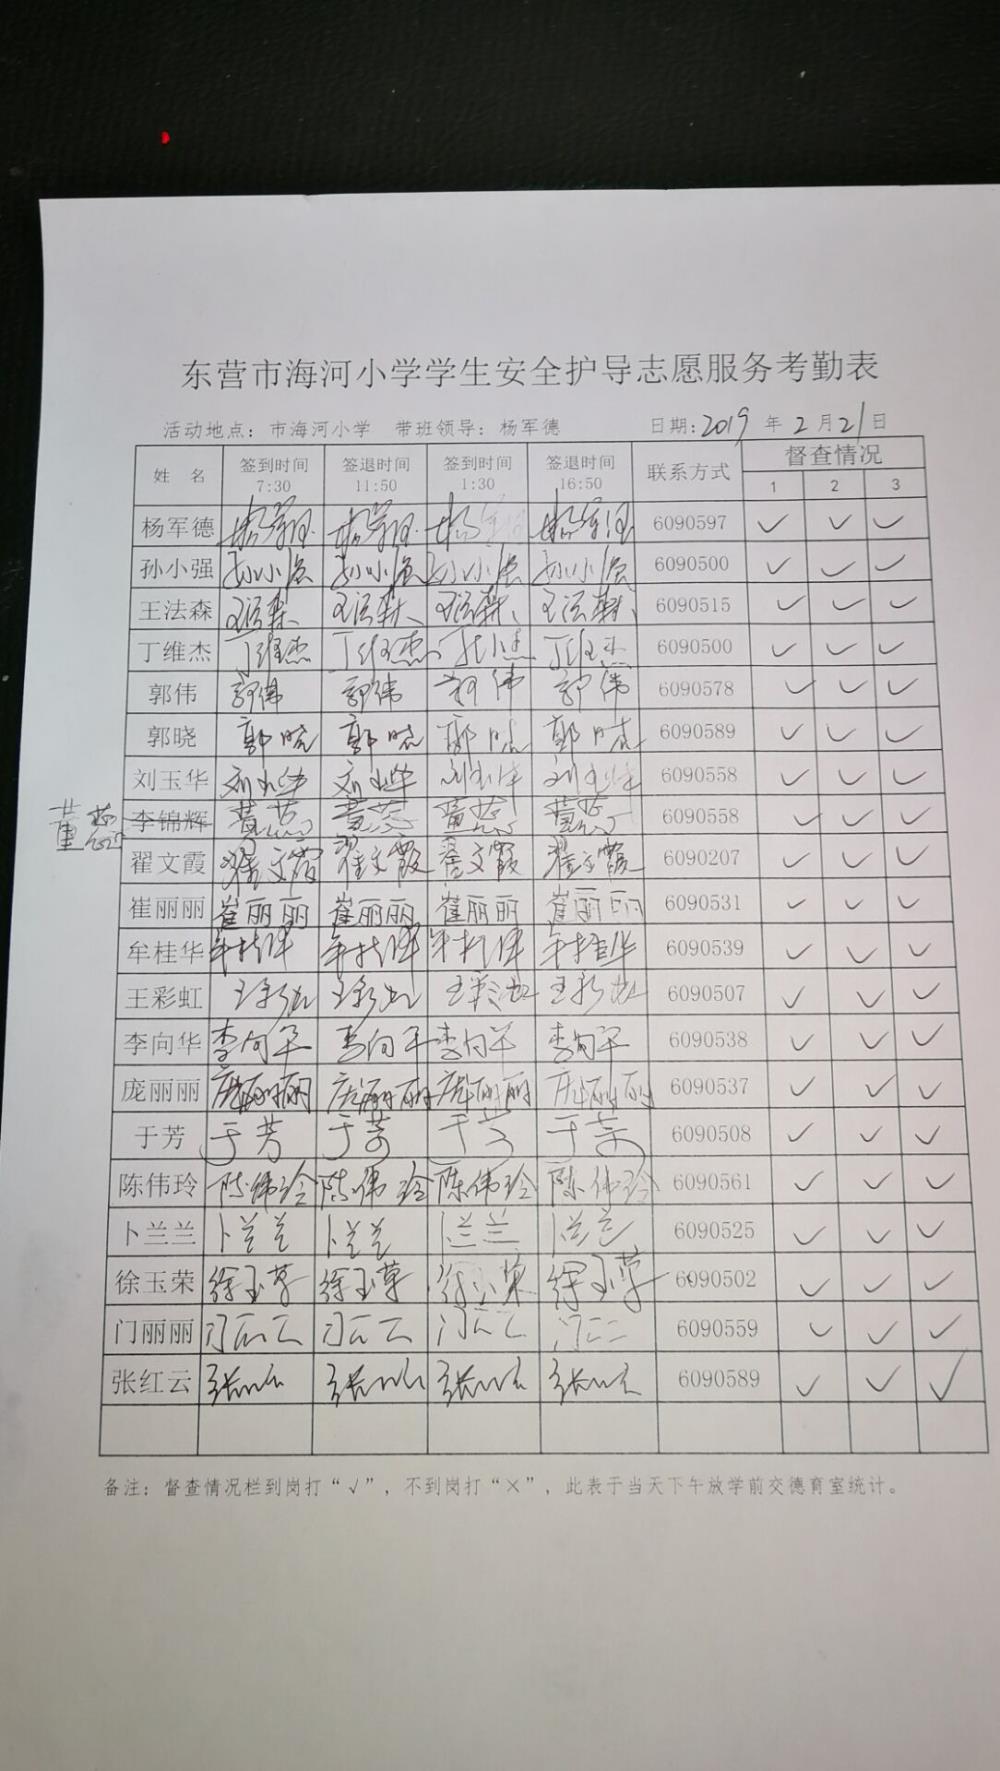 东营市海河小学学生安全护导志愿服务考勤表
活动地点：市海河小学 带班领导：杨军德 日期：2019 年 2 月 21 日
姓 名 签到时间 7:30 签退时间 11:50 签到时间 1:30 签退时间 16:50 联系方式 督查情况
1 2 3
杨军德 杨军德 杨军德 杨军德 杨军德 6090597 ✓ ✓ ✓
孙小强 孙小强 孙小强 孙小强 孙小强 6090500 ✓ ✓ ✓
王法森 王法森 王法森 王法森 王法森 6090515 ✓ ✓ ✓
丁维杰 丁维杰 丁维杰 丁维杰 丁维杰 6090500 ✓ ✓ ✓
郭伟 郭伟 郭伟 郭伟 郭伟 6090578 ✓ ✓ ✓
郭晓 郭晓 郭晓 郭晓 郭晓 6090589 ✓ ✓ ✓
刘玉华 刘玉华 刘玉华 刘玉华 刘玉华 6090558 ✓ ✓ ✓
董 李锦辉 董 董 董 董 6090558 ✓ ✓ ✓
翟文霞 翟文霞 翟文霞 翟文霞 翟文霞 6090207 ✓ ✓ ✓
崔丽丽 崔丽丽 崔丽丽 崔丽丽 崔丽丽 6090531 ✓ ✓ ✓
牟桂华 牟桂华 牟桂华 牟桂华 牟桂华 6090539 ✓ ✓ ✓
王彩虹 王彩虹 王彩虹 王彩虹 王彩虹 6090507 ✓ ✓ ✓
李向华 李向华 李向华 李向华 李向华 6090538 ✓ ✓ ✓
庞丽丽 庞丽丽 庞丽丽 庞丽丽 庞丽丽 6090537 ✓ ✓ ✓
于芳 于芳 于芳 于芳 于芳 6090508 ✓ ✓ ✓
陈伟玲 陈伟玲 陈伟玲 陈伟玲 陈伟玲 6090561 ✓ ✓ ✓
卜兰兰 卜兰兰 卜兰兰 卜兰兰 卜兰兰 6090525 ✓ ✓ ✓
徐玉荣 徐玉荣 徐玉荣 徐玉荣 徐玉荣 6090502 ✓ ✓ ✓
门丽丽 门丽丽 门丽丽 门丽丽 门丽丽 6090559 ✓ ✓ ✓
张红云 张红云 张红云 张红云 张红云 6090589 ✓ ✓ ✓
备注：督查情况栏到岗打“√”，不到岗打“×”，此表于当天下午放学前交德育室统计。